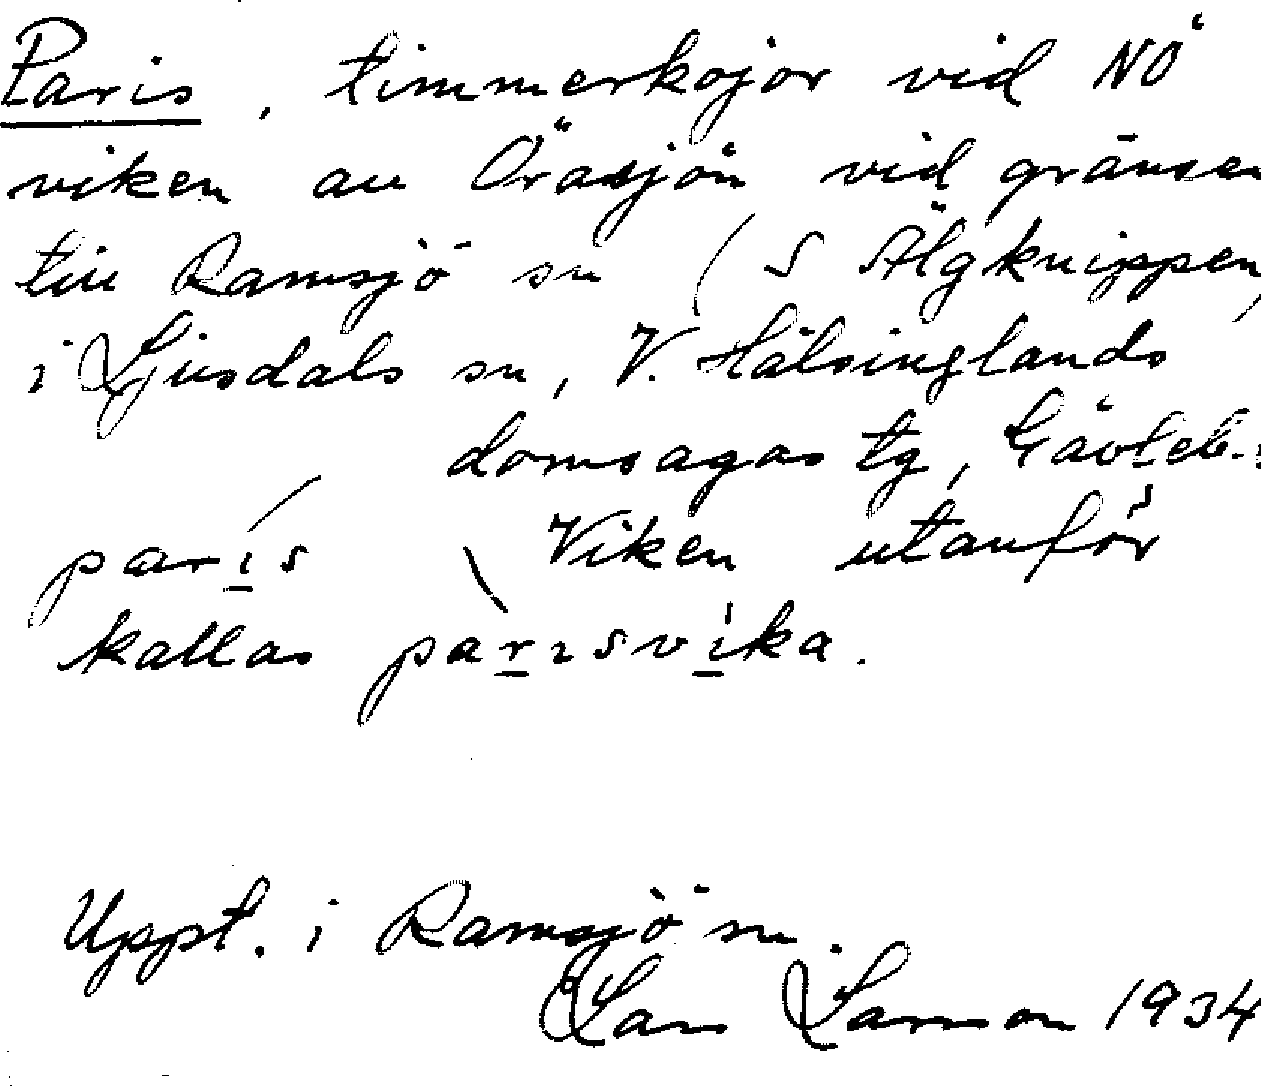 Paris, timmerkojor vid NÖ
viken av Öråsjön vid gränsen
till Ramsjö sn (S Älgknippen,
i Ljusdals sn, V. Hälsinglands
domsagas tg, Gävleb.
parıs Viken utanför
kallas parısvika.
Uppt. i Ramsjö sn.
Lars Larsson 1934